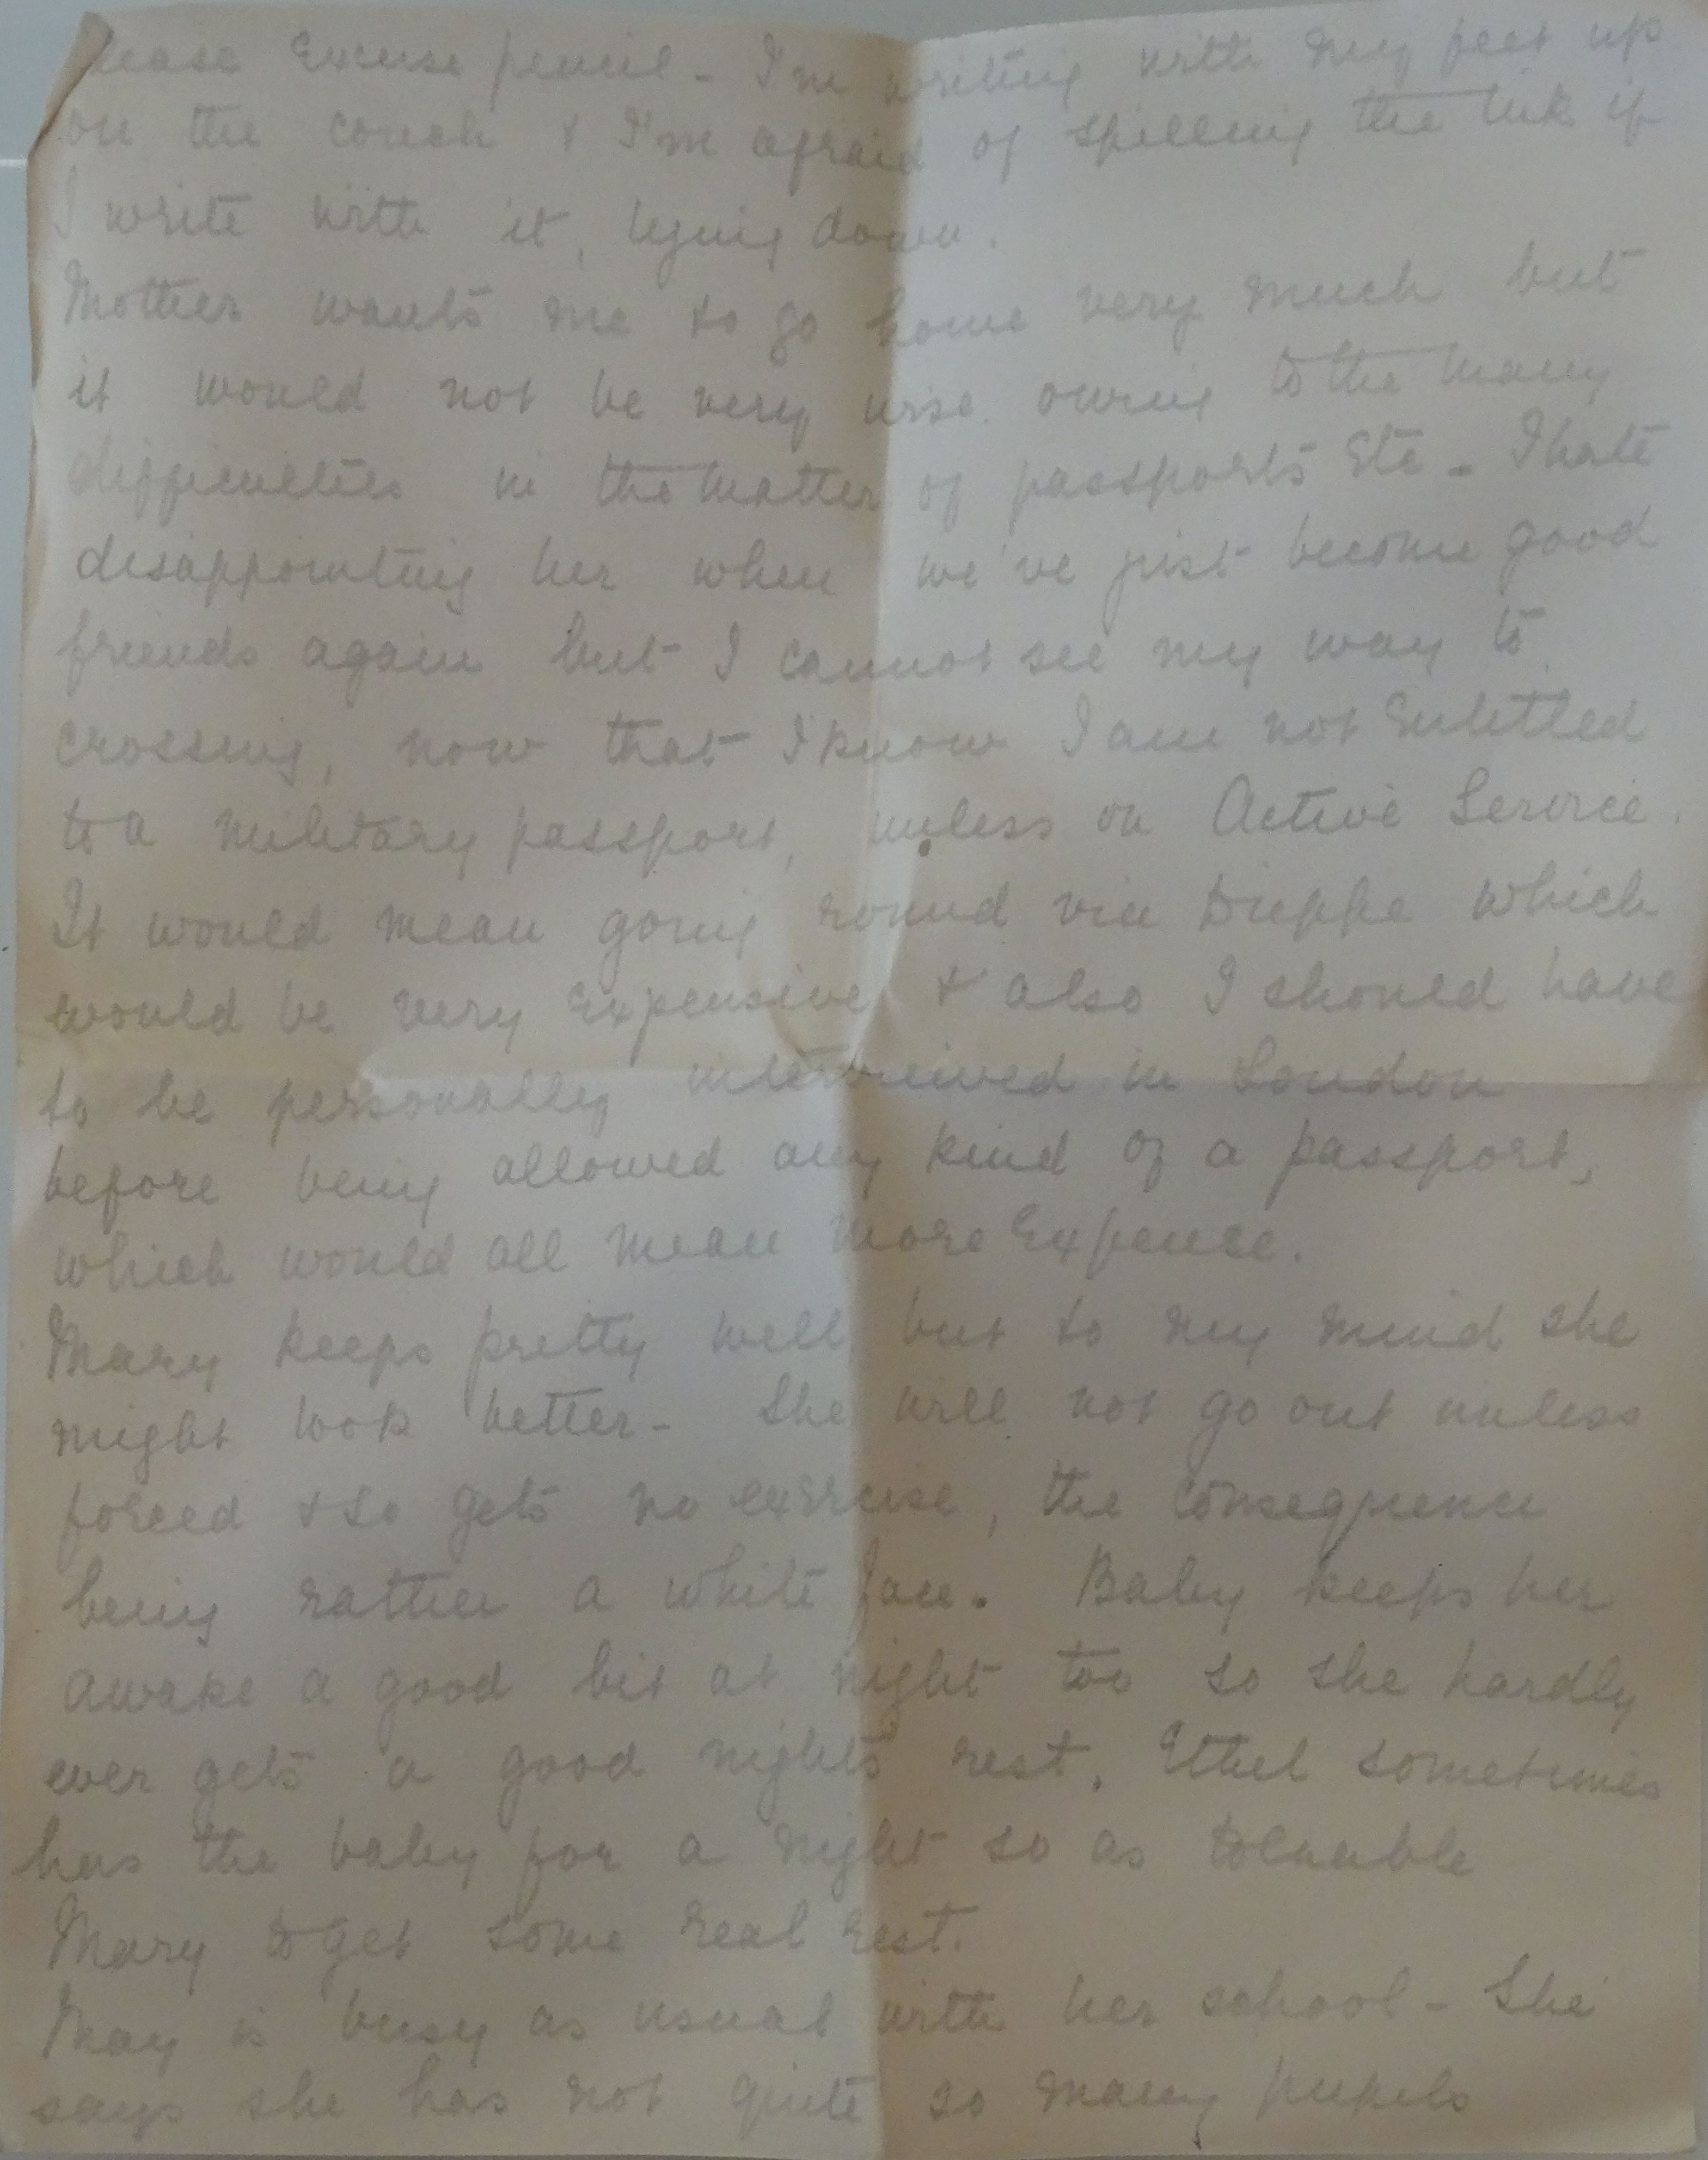 Please Excuse pencil - I'm writing with my feet up
on the couch & I'm afraid of spilling the ink if
I write with it, lying down.
Mother wants me to go home very much but
it would not be very wise owing to the many
difficulties in the matter of passports Etc - I hate
disappointing her when we've just become good
friends again but I cannot see my way to
crossing, now that I know I am not Entitled
to a military passport, unless on Active Service.
It would mean going round via Dieppe which
would be very Expensive & also I should have
to be personally interviewed in London
before being allowed any kind of a passport,
which would all mean more Expence.
Mary keeps pretty well but to my mind she
might look better - She will not go out unless
forced & so gets no exercise, the consequence
being rather a white face. Baby keeps her
awake a good bit at night too so she hardly
ever gets a good nights rest. Ethel sometimes
has the baby for a night so as to enable
Mary to get some real rest.
May is busy as usual with her school - She
says she has not quite so many pupils